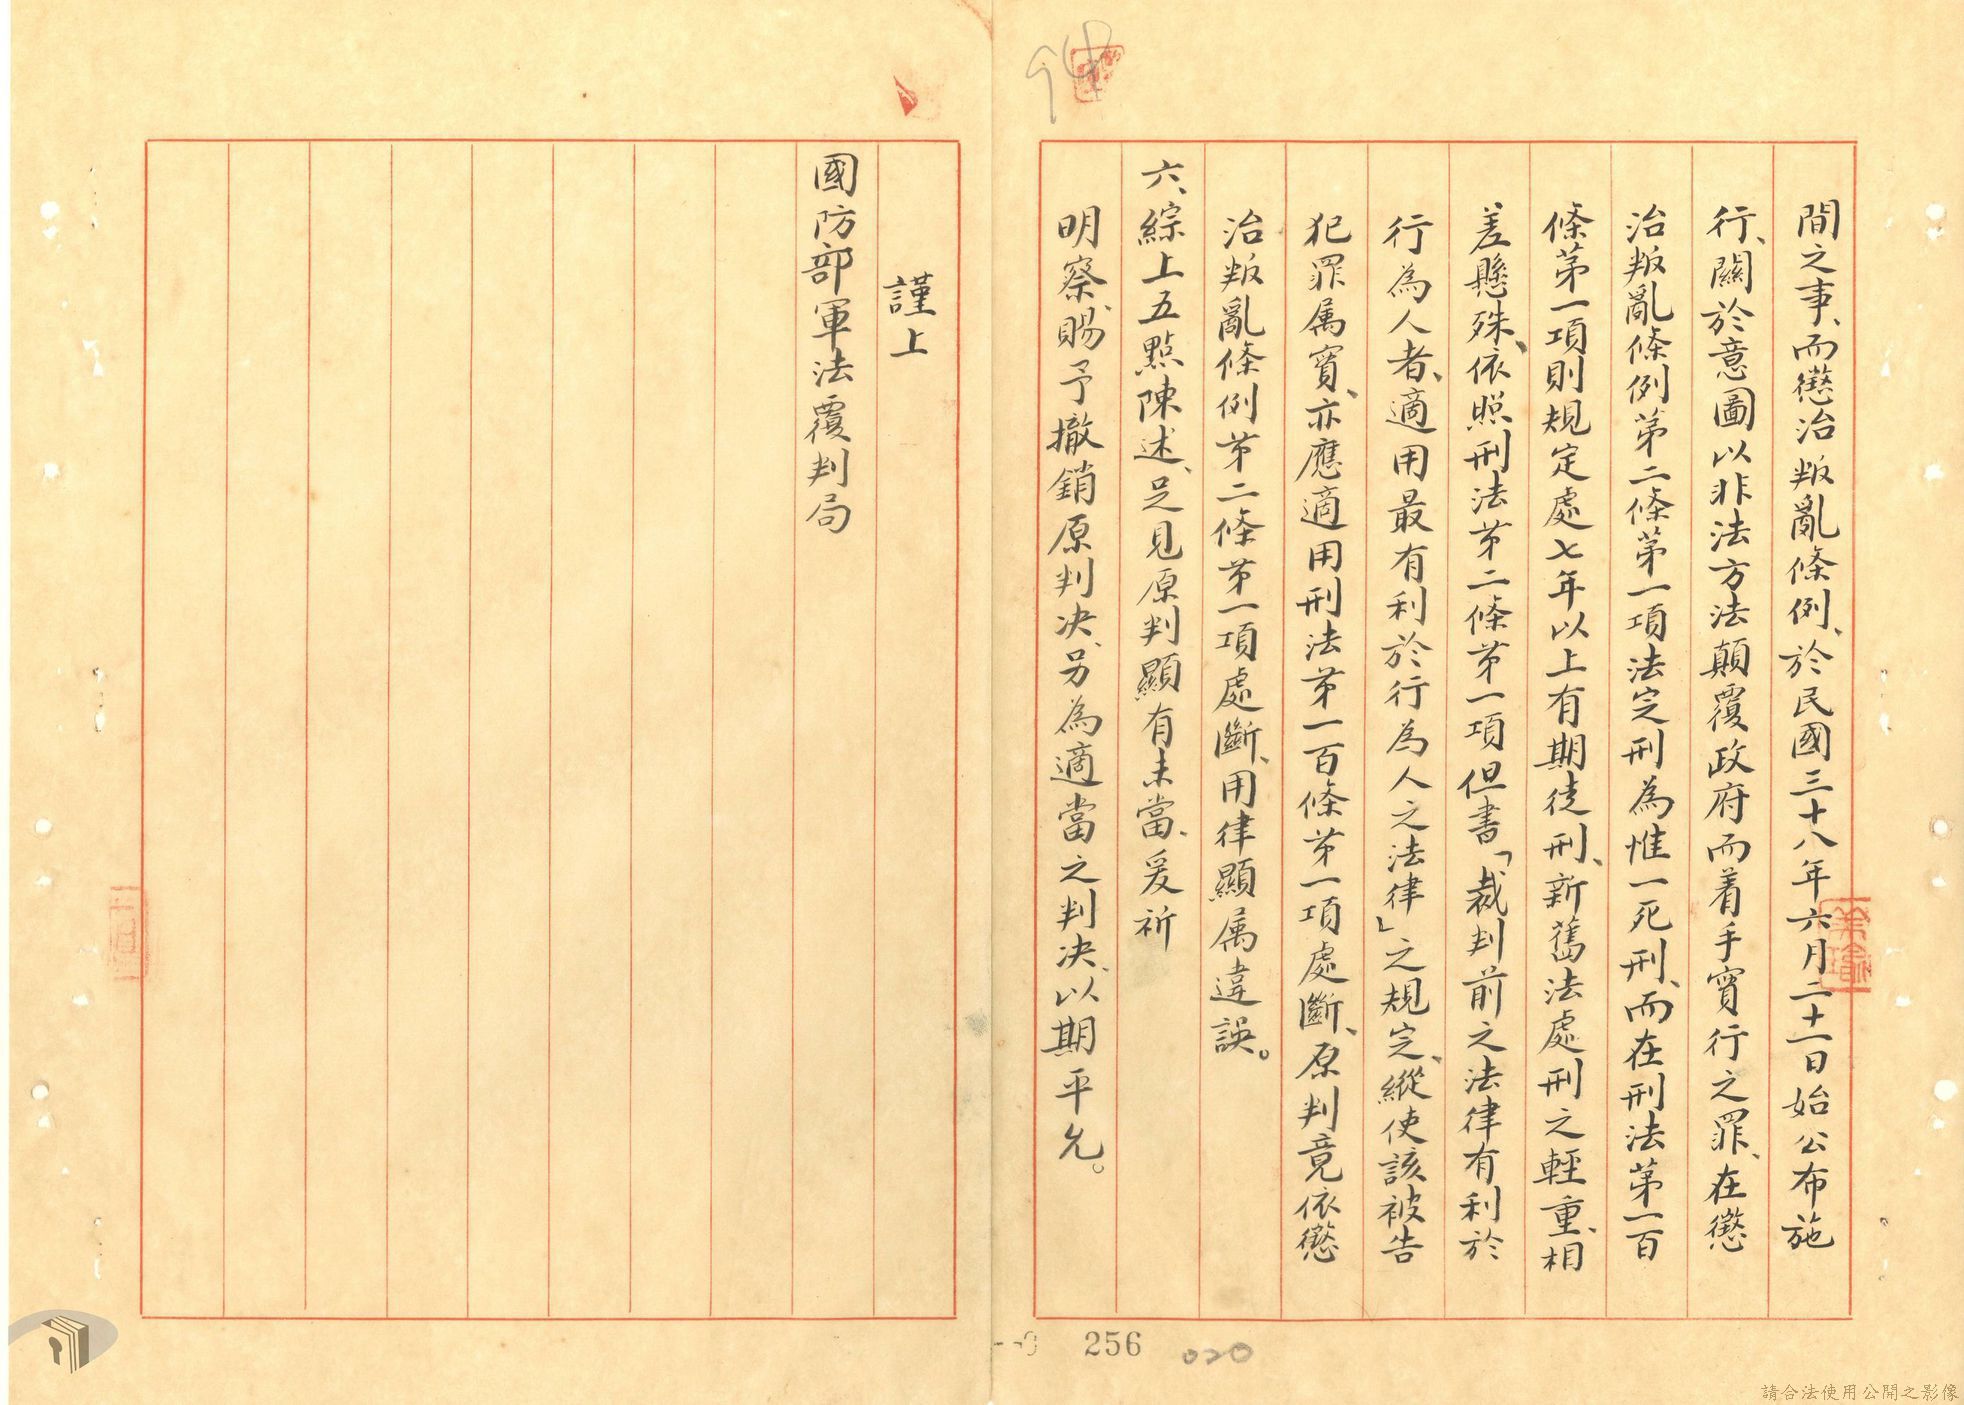 94
間之事、而懲治叛亂條例、於民國三十八年六月二十一日始公布施
行、關於意圖以非法方法顛覆政府而着手實行之罪、在懲
治叛亂條例第二條第一項法定刑為惟一死刑、而在刑法第一百
條第一項則規定處七年以上有期徒刑、新舊法處刑之輕重、相
差懸殊、依照刑法第二條第一項但書「裁判前之法律有利於
行為人者、適用最有利於行為人之法律」之規定、縱使該被告
犯罪属實、亦應適用刑法第一百條第一項處斷、原判竟依懲
治叛亂條例第二條第一項處斷、用律顯属違誤。
六、綜上五點陳述、足見原判顯有未當、爰祈
明察、賜予撤銷原判决、另為適當之判决、以期平允。
謹上
國防部軍法覆判局
256
020
請合法使用公開之影像